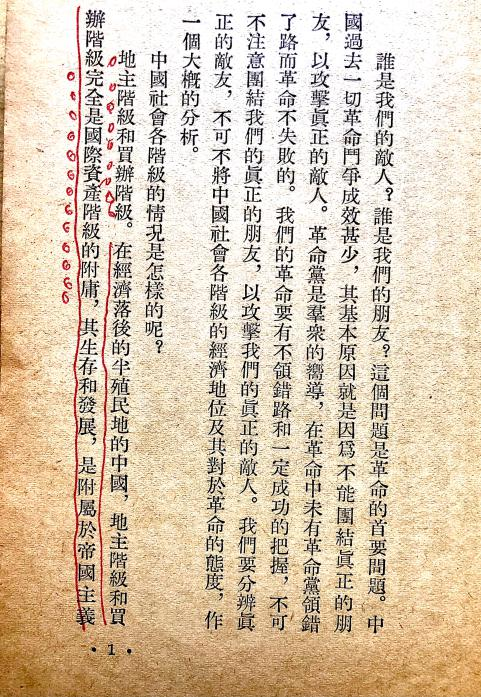 誰是我們的敵人？誰是我們的朋友？這個問題是革命的首要問題。中
國過去一切革命鬥爭成效甚少，其基本原因就是因爲不能團結眞正的朋
友，以攻擊眞正的敵人。革命黨是羣衆的嚮導，在革命中未有革命黨領錯
了路而革命不失敗的。我們的革命要有不領錯路和一定成功的把握，不可
不注意團結我們的眞正的朋友，以攻擊我們的眞正的敵人。我們要分辨眞
正的敵友，不可不將中國社會各階級的經濟地位及其對於革命的態度，作
一個大槪的分析。
中國社會各階級的情況是怎樣的呢？
地主階級和買辦階級。在經濟落後的半殖民地的中國，地主階級和買
辦階級完全是國際資產階級的附庸，其生存和發展，是附屬於帝國主義
• 1 •